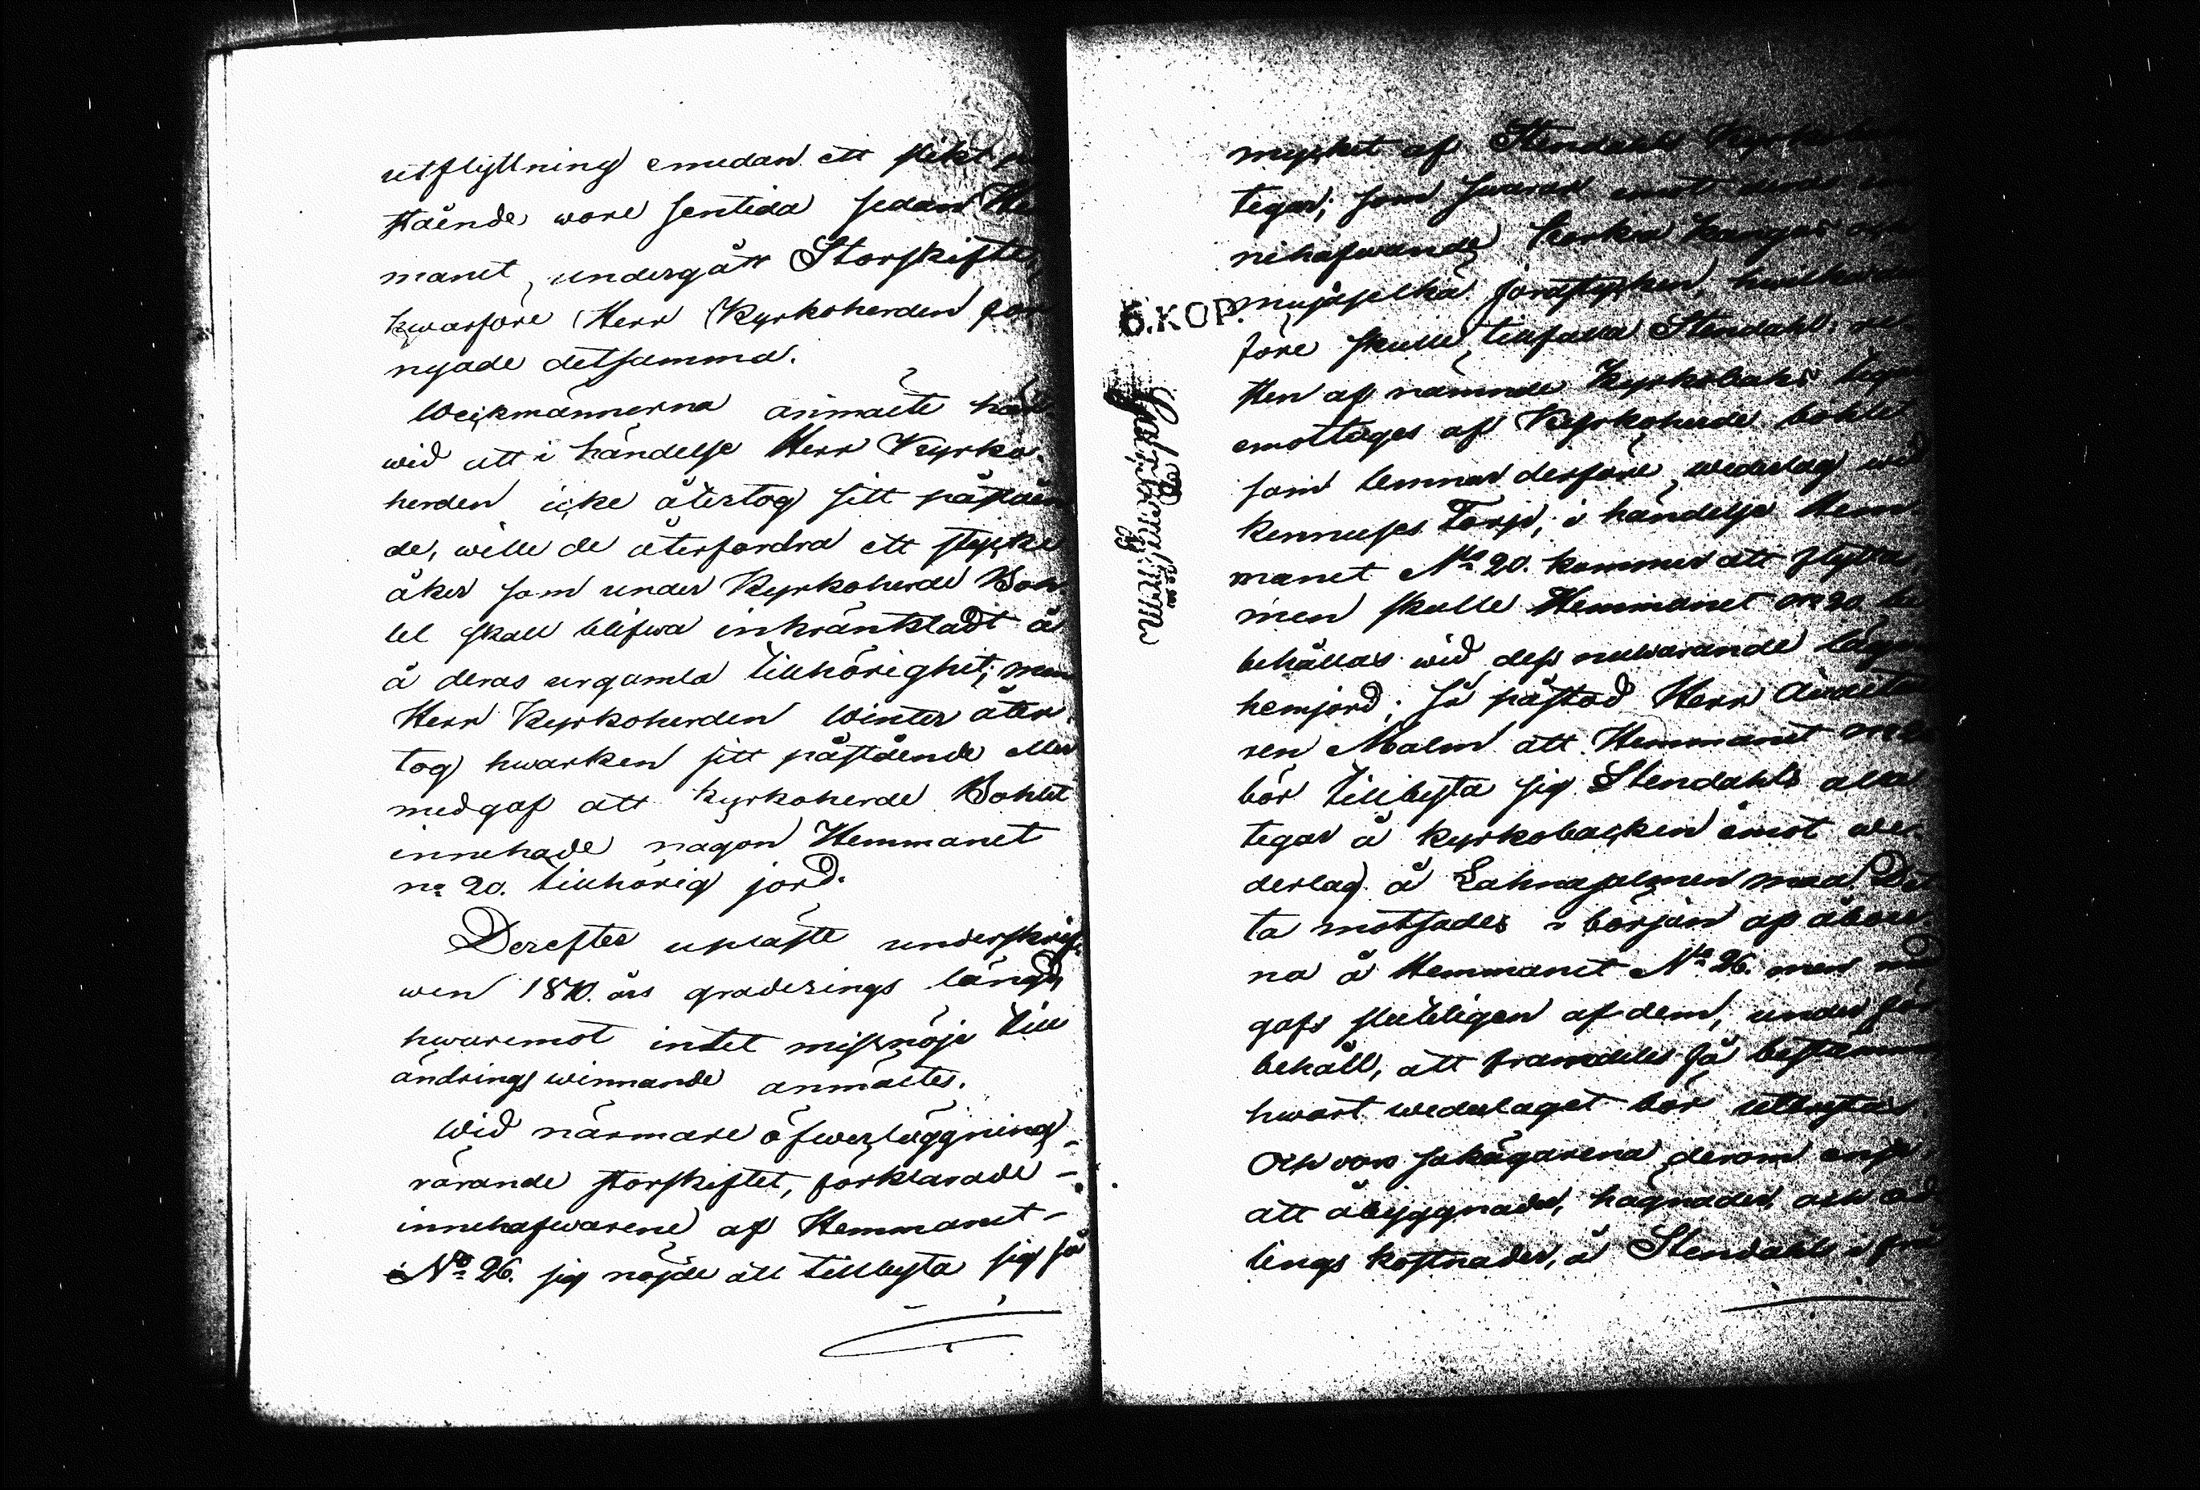 utflyttning emedan ett slikt
stående wore sentida sedan He
manet undergått Storskifte,
hwarföre Herr Kyrkoherden för
nyade detsamma.
Weckmännerna anmälte här
wid att i händelse Herr Kyrko-
herden icke återtog sitt påståen
de, wille de återfordra ett stycke
åker som under Kyrkoherde Boh
let skall blifwa inkräntladt å
å deras urgamla tillhörighet; men
Herr Kyrkoherden Winter åter
tog hwarken sitt påstående eller
medgaf att Kyrkoherde Bohlet
innehade någon Hemmanet
no 20. tillhörig jord.
Derefter uplästes underskrif
wen 1810. års graderings längd,
hwaremot intet missnöje till
ändrings winnande anmältes.
Wid närmare öfwerläggning
rörande storskiftet, förklarade
innehafwarene af Hemmanet
No 26. sig nöjde att tillbyta sig så
mycket af Stendahls
tegar; som swarar emot deras
nehafwande
jordstycken, hwilka
före skulle tillfalla Stendahl;
sten af nämnde Kyrkobacks tegar
emottages af Kyrkoherde bohlet
som lemnar derföre wederlag wid
Torp; i händelse Hem
manet No 20. kommer att flytta,
men skulle Hemmanet no 20. be
behållas wid dess nuwarande lägen
hemjord; så påstod Herr Auditeu
ren Malm att Hemmanet no 26
bör tillbyta sig Stendahls alla
tegar å kyrkobacken emot we-
derlag å maa. Det
ta motsades i början af åboer
na å Hemmanet No 26. men med
gafs slutligen af dem, under för
behåll, att framdeles få bestämma
hwart wederlaget bör utbytas.
Och woro sakägarena derom ense
att åbyggnader, hägnader och od
lings kostnader, å Stendahls
6.KOP.